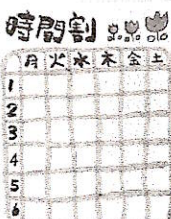 時間割
月 火 水 木 金 土
1
2
3
4
5
6